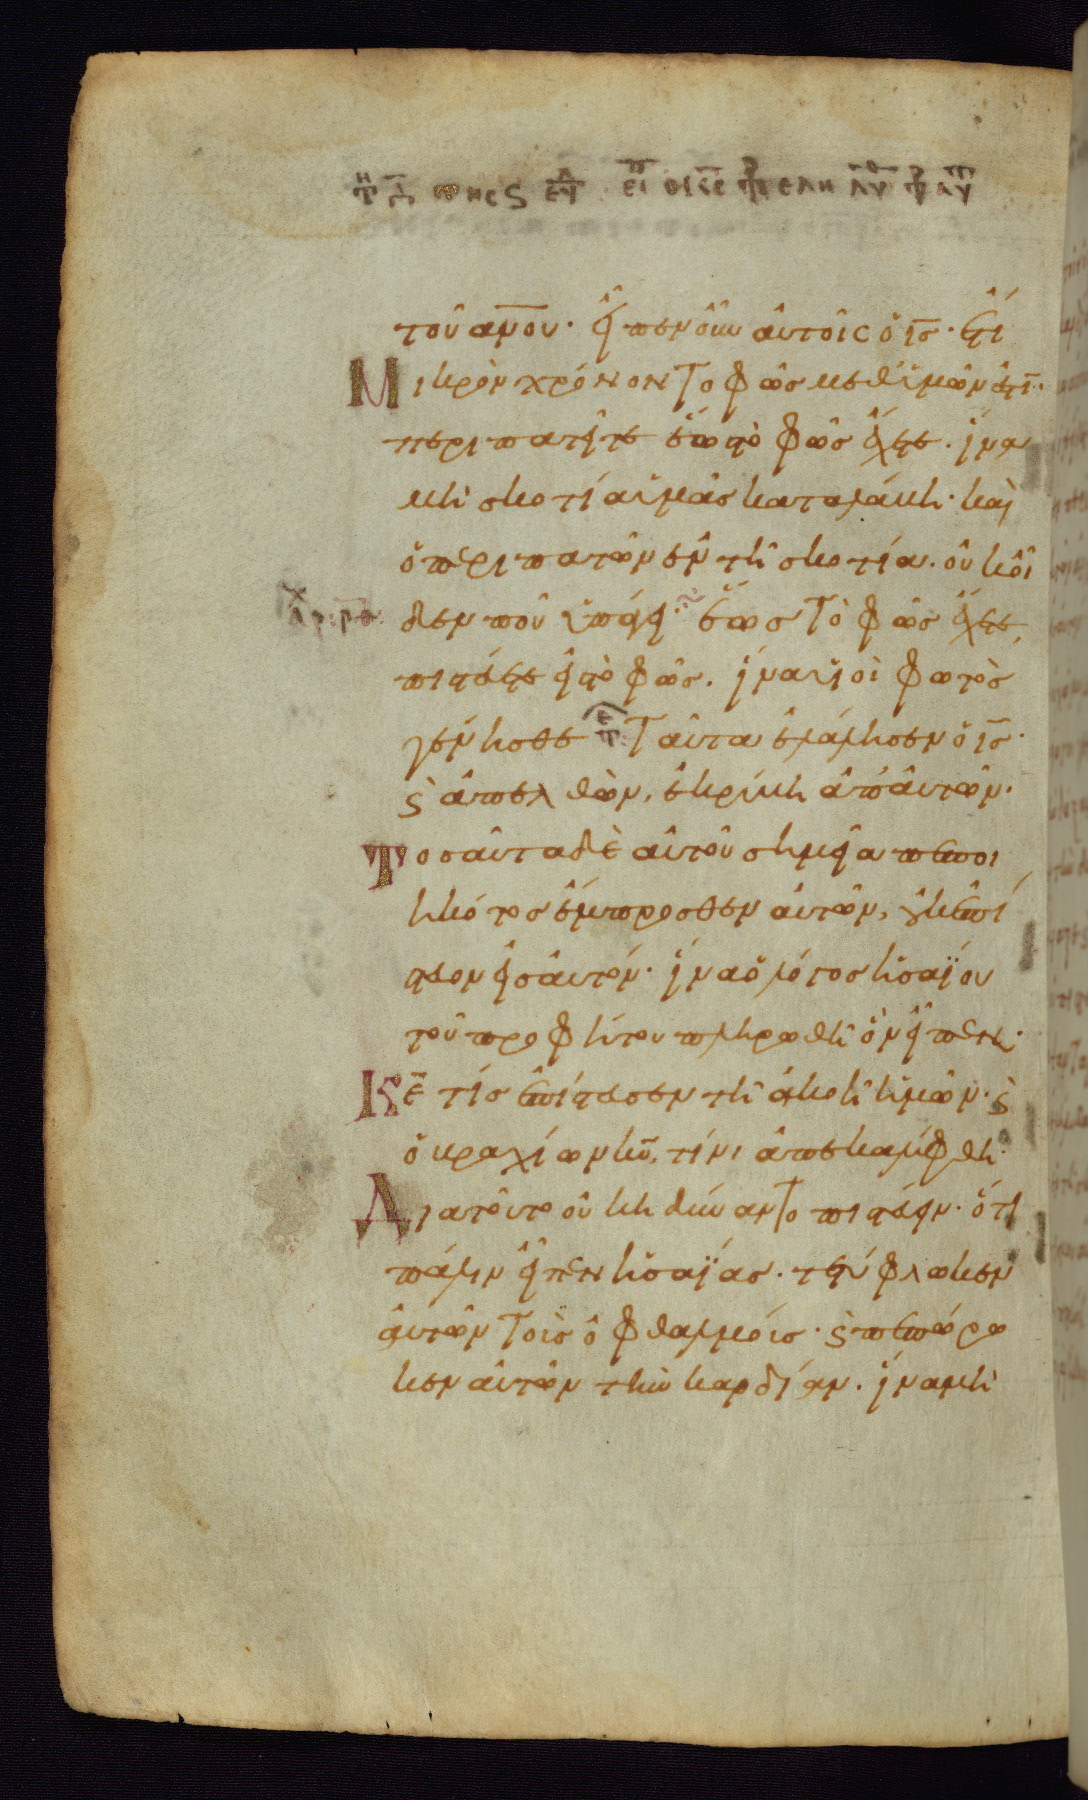 τοῦ ἀν̅ου· εἶπεν οὖν αὐτοῖς ὁ ις̅· ἔτι
Μικρὸν χρόνον Το φῶς μεθ ὑμῶν ἐστι·
περιπατεῖτε ἕως τὸ φῶς ἔχετε· ἵνα
μὴ σκοτία ὑμᾶς καταλάβη· καὶ
ὁ περιπατῶν ἐν τῆ σκοτία. οὐκ οἶ
δεν ποῦ ὑπάγει· ἕως Τὸ φῶς ἔχετε,
πιστεύετε εἰς τὸ φῶς. ἵνα υἱοὶ φωτὸς
γένησθε Ταῦτα ἐλάλησεν ὁ ις̅·
ϛ̀ ἀπελθὼν, ἐκρύβη ἀπ' αὐτῶν·
Τοσαῦτα δὲ αὐτοῦ σημεῖα πεποι
ηκότος ἔμπροσθεν αὐτῶν, οὐκ ἐπί
στευον εἰς αὐτόν· ἵνα ὁ λόγος ἡσαΐου
τοῦ προφήτου πληρωθῆ ὃν εἶπεν·
Κε̅ τίς ἐπίστευσεν τῆ ἀκοῆ ἡμῶν· ϛ̀
ὁ βραχίων κυ̅, τίνι ἀπεκαλύφθη·
Διατοῦτο οὐκ ηδύναντο πιστεύειν· ὅτι
πάλιν εἶπεν ἡσαΐας· τετύφλωκεν
αὐτῶν Τοὺς ὀφθαλμούς· ϛ̀ πεπώρω
κεν αὐτῶν τὴν καρδίαν. ἵνα μὴ